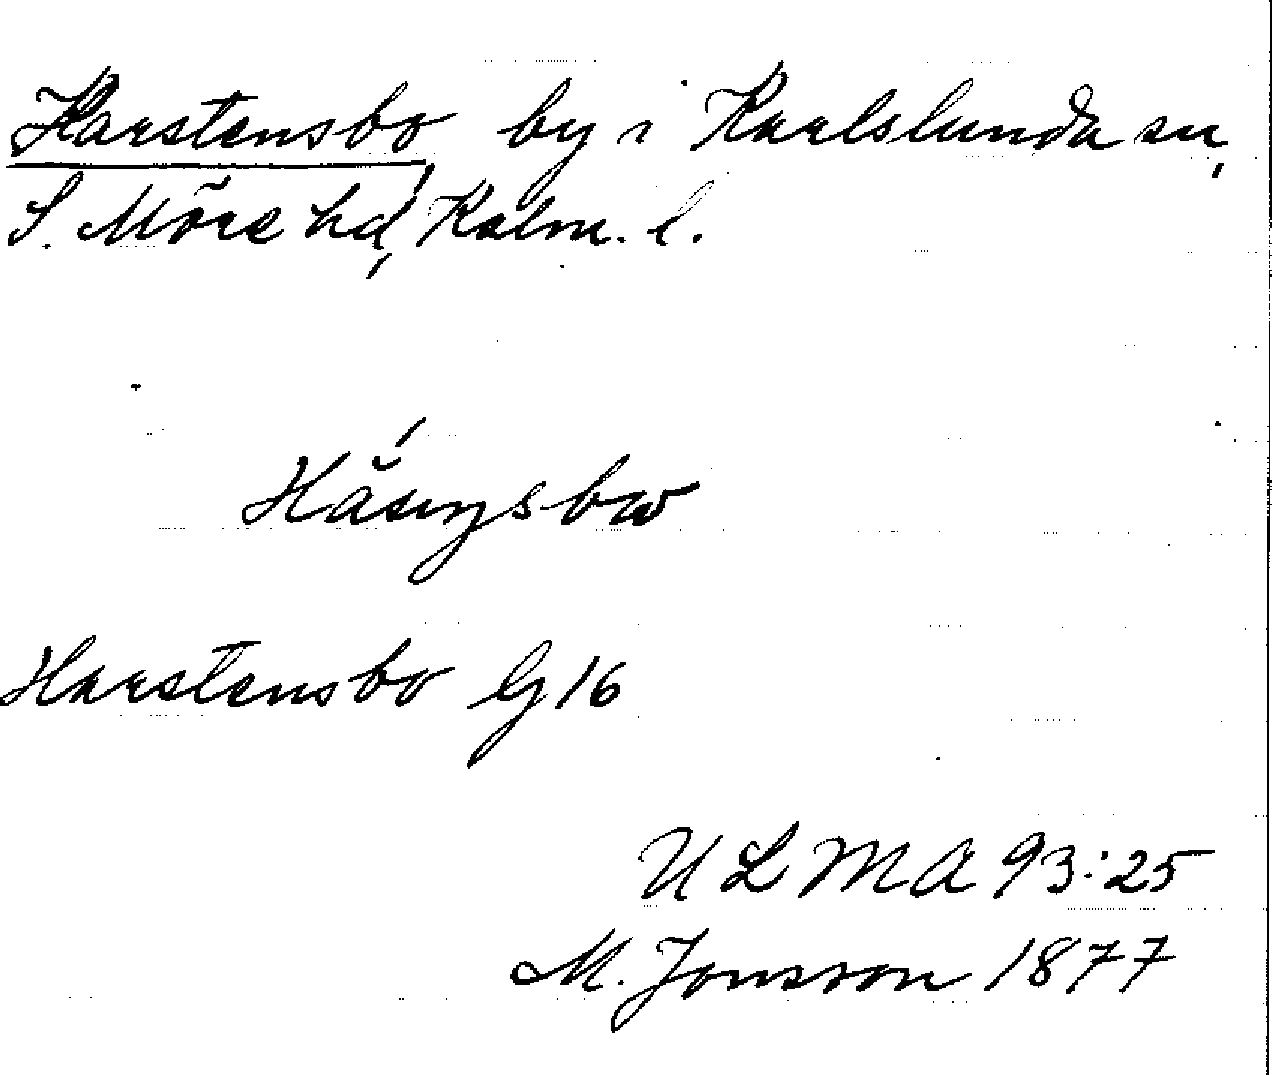 Harstensbo by i Karlslunda sn,
S. Möre hd, Kalm. l.
Harstensbo G 16
ULMA 93:25
M. Jonsson 1877